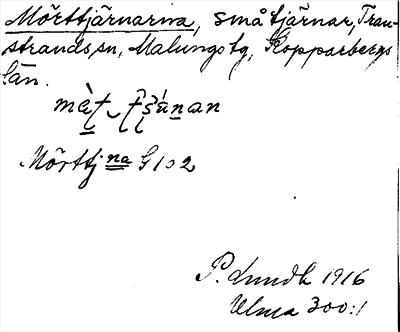 Mörttjärnarna, småtjärnar, Tran-
strands sn, Malungs tg, Kopparbergs
län.
Mörttj na G 102
P. Lundh 1916
Ulma 300:1